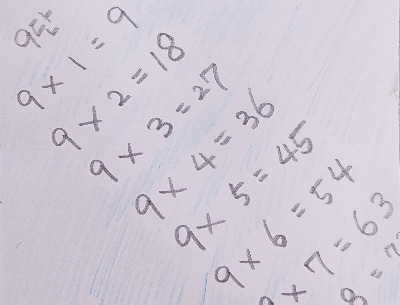 9단
9 × 1 = 9
9 × 2 = 18
9 × 3 = 27
9 × 4 = 36
9 × 5 = 45
9 × 6 = 54
9 × 7 = 63
8 =